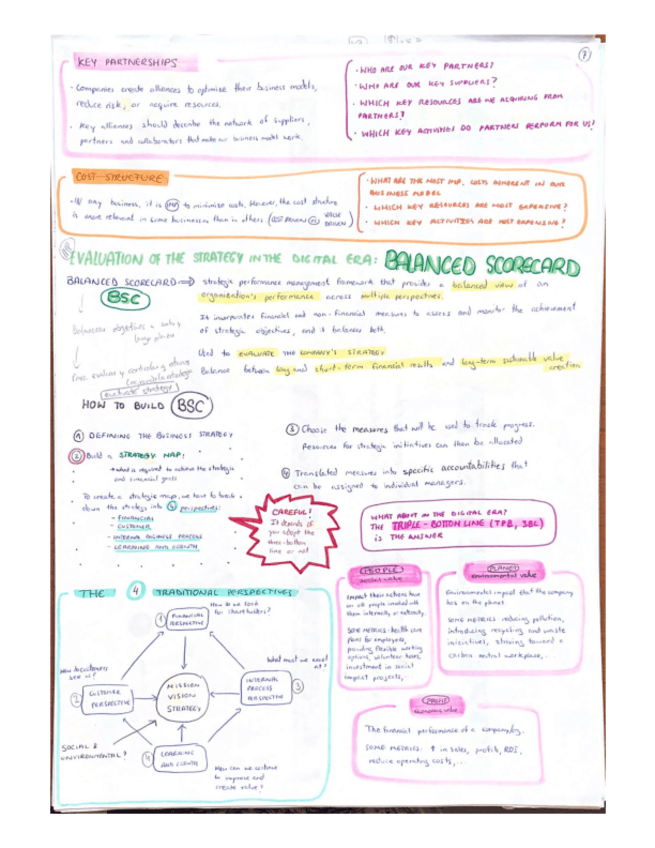 7
KEY PARTNERSHIPS
· Companies create alliances to optimise their business models,
reduce risk, or acquire resources.
· Key alliances should describe the network of suppliers,
partners and collaborators that make our business model work.
· WHO ARE OUR KEY PARTNERS?
· WHO ARE OUR KEY SUPPLIERS?
· WHICH KEY RESOURCES ARE WE ACQUIRING FROM
PARTNERS?
· WHICH KEY ACTIVITIES DO PARTNERS PERFORM FOR US?
COST STRUCTURE
· IN any business, it is IMP to minimise costs. However, the cost structure
is more relevant in some businesses than in others (COST DRIVEN VALUE DRIVEN)
· WHAT ARE THE MOST IMP. COSTS INHERENT IN OUR
BUSINESS MODEL
· WHICH KEY RESOURCES ARE MOST EXPENSIVE?
· WHICH KEY ACTIVITIES ARE MOST EXPENSIVE?
EVALUATION OF THE STRATEGY IN THE DIGITAL ERA: BALANCED SCORECARD
BALANCED SCORECARD → strategic performance management framework that provides a balanced view of an
organisation's performance across multiple perspectives.
BSC
It incorporates financial and non-financial measures to assess and monitor the achievement
of strategic objectives, and it balances both.
Used to EVALUATE THE COMPANY'S STRATEGY
Balance between long and short-term financial results and long-term sustainable value
creation
largo plazo
evaluate strategy
HOW TO BUILD BSC
① DEFINING THE BUSINESS STRATEGY
② Build a STRATEGY MAP:
→ what is required to achieve the strategic
and financial goals
To create a strategic map, we have to break
down the strategy into 4 perspectives:
- FINANCIAL
- CUSTOMER
- INTERNAL BUSINESS PROCESS
- LEARNING AND GROWTH
③ Choose the measures that will be used to track progress.
Resources for strategic initiatives can then be allocated
④ Translated measures into specific accountabilities that
can be assigned to individual managers.
CAREFUL!
It depends if
you adopt the
three-bottom
line or not
WHAT ABOUT IN THE DIGITAL ERA?
THE TRIPLE-BOTTOM LINE (TPB, 3BL)
is THE ANSWER
THE 4 TRADITIONAL PERSPECTIVES
① FINANCIAL
PERSPECTIVE
How do we look
for shareholders?
How do customers
see us?
② CUSTOMER
PERSPECTIVE
MISSION
VISION
STRATEGY
What must we excel
at?
INTERNAL
PROCESS
PERSPECTIVE
③
SOCIAL &
ENVIRONMENTAL?
④ LEARNING
AND GROWTH
How can we continue
to improve and
create value?
PEOPLE
social value
Impact their actions have
on all people involved with
them internally or externally.
SOME METRICS: health care
plans for employees,
providing flexible working
options, volunteer hours,
investment in social
impact projects,...
PLANET
environmental value
Environmental impact that the company
has on the planet.
SOME METRICS: reducing pollution,
introducing recycling and waste
iniciatives, striving toward a
carbon neutral workplace,...
PROFIT
economic value
The financial performance of a company.
SOME METRICS: ↑ in sales, profits, ROI,
reduce operating costs,...